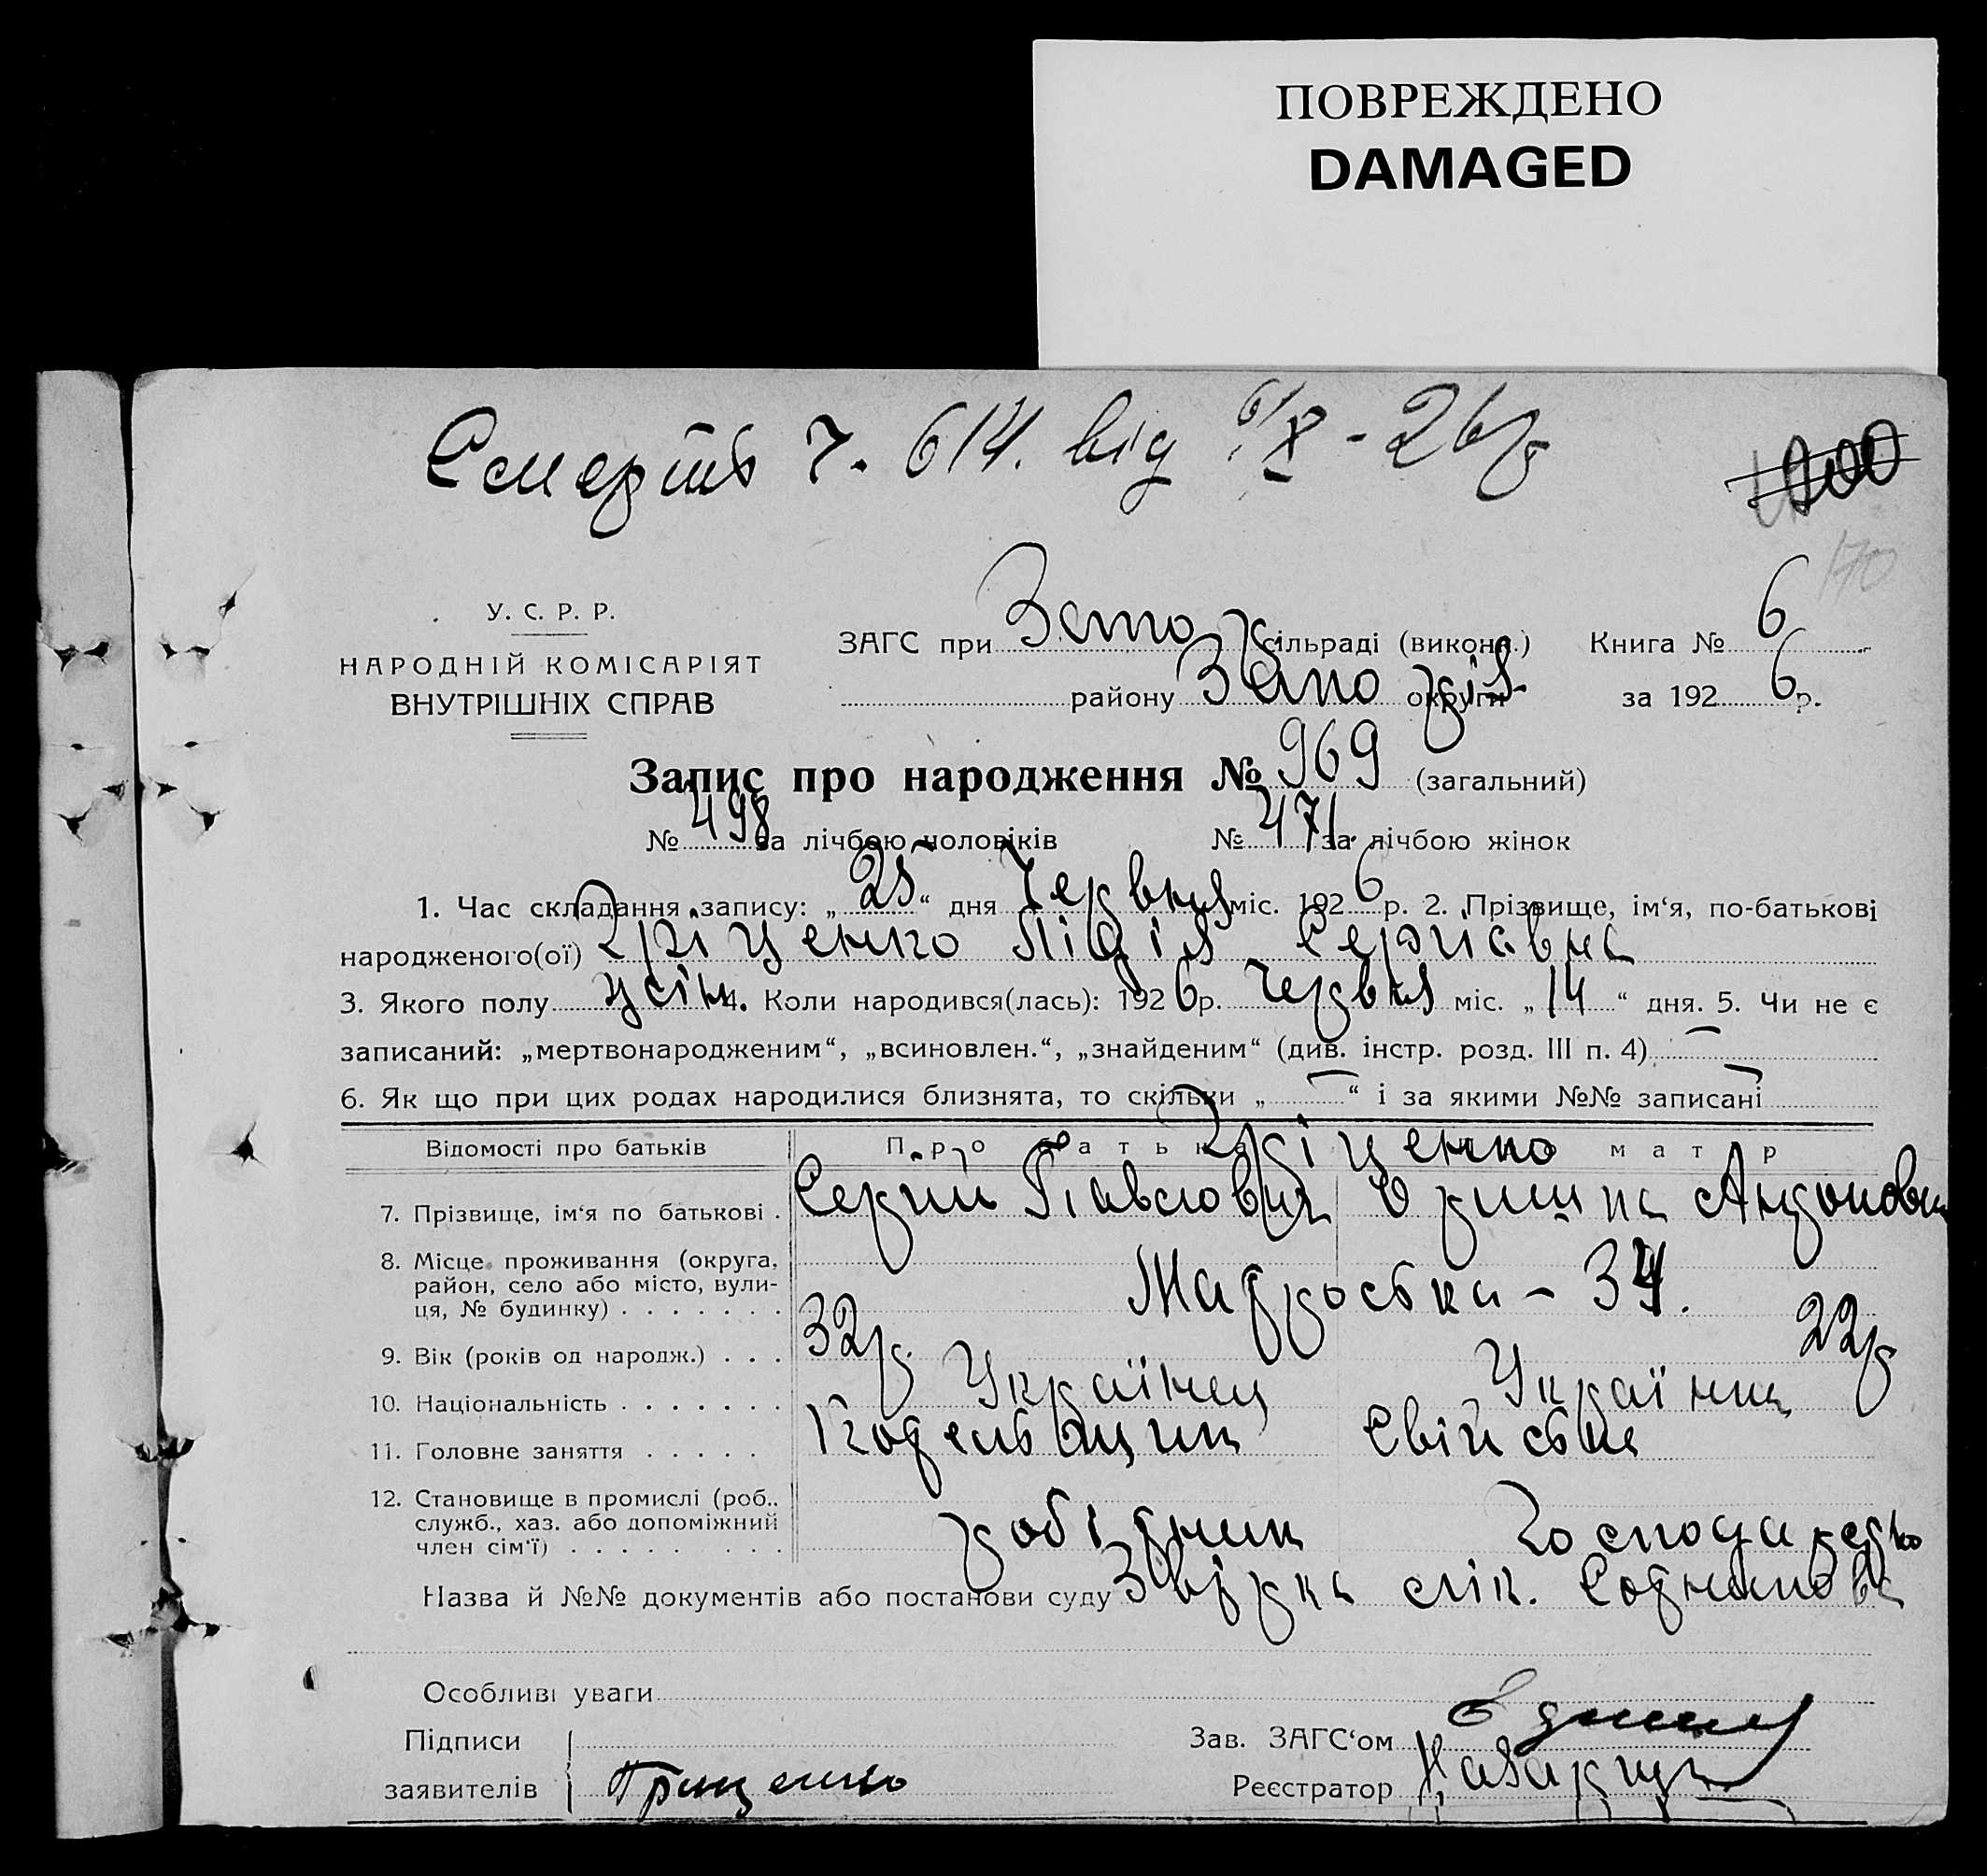 ПОВРЕЖДЕНО
DAMAGED
Смерть ч. 614. від 6/X - 26 р
170
У. С. Р. Р.
НАРОДНІЙ КОМІСАРІЯТ
ВНУТРІШНІХ СПРАВ
ЗАГС при сільраді (викон.) Книга № 6
району округи за 1926 р.
Запис про народження № 969 (загальний)
№ 498 за лічбою чоловіків № 471 за лічбою жінок
1. Час складання запису: „25“ дня Червня міс. 1926 р. 2. Прізвище, ім‘я, по-батькові
народженого(ої) Гріценко Лідія Сергіївна
3. Якого полу жін. 4. Коли народився(лась): 1926 р. Червня міс. „14“ дня. 5. Чи не є
записаний: „мертвонародженим“, „всиновлен.“, „знайденим“ (див. інстр. розд. III п. 4) —
6. Як що при цих родах народилися близнята, то скільки „—“ і за якими №№ записані —
Відомості про батьків Про батька матір
Гріценко
7. Прізвище, ім‘я по батькові . Сергій Павлович
8. Місце проживання (округа,
район, село або місто, вули-
ця, № будинку) . . . . . . .
9. Вік (років од народж.) . . . 32 р. 22 р
10. Національність . . . . . . . Українец Українка
11. Головне заняття . . . . . Котельщик Свійське
12. Становище в промислі (роб.,
служб., хаз. або допоміжний
член сім‘ї) . . . . . . . . робітник Господарство
Назва й №№ документів або постанови суду лік.
Особливі уваги
Підписи
заявителів Грищенко
Зав. ЗАГС‘ом
Реєстратор